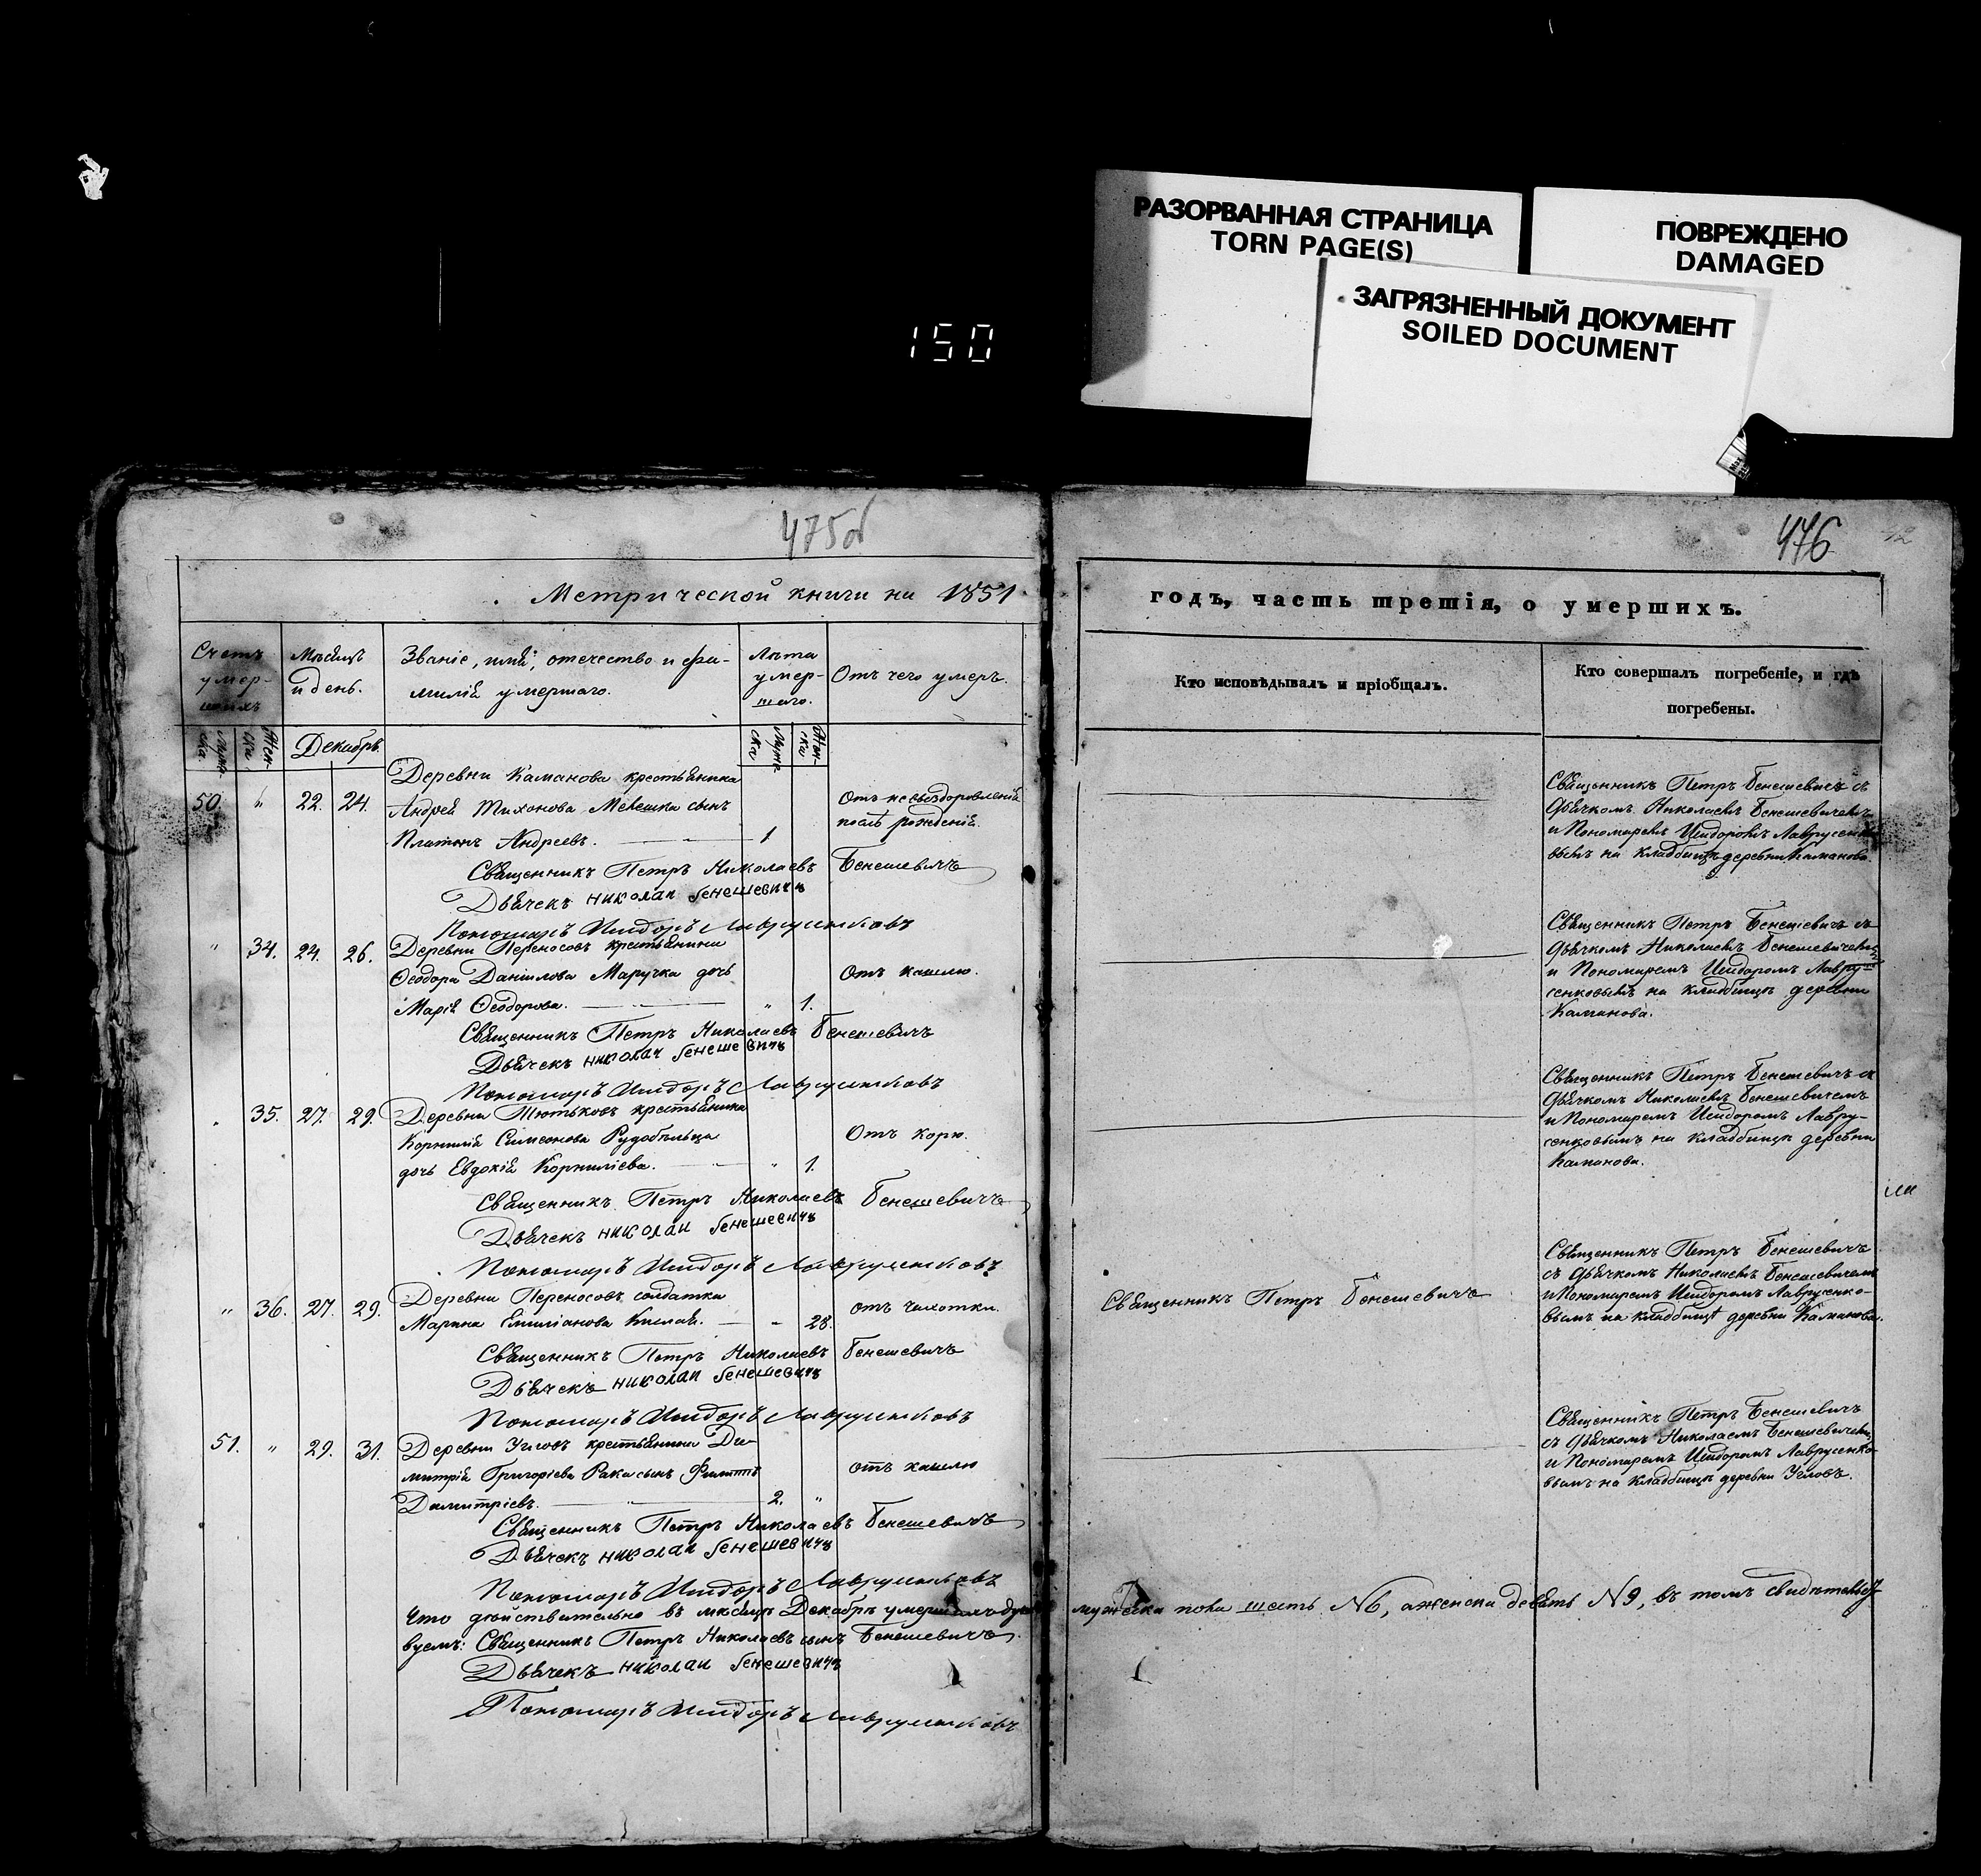 150
РАЗОРВАННАЯ СТРАНИЦА
TORN PAGE(S)
ПОВРЕЖДЕНО
DAMAGED
ЗАГРЯЗНЕННЫЙ ДОКУМЕНТ
SOILED DOCUMENT
475об
Метрической книги на 1851
Счетъ умершихъ
Мѣсяцъ и день.
Званіе, имя, отечество и фа-
милія умершаго.
Лѣта
умер-
шаго.
Отъ чего умеръ.
Мужеска
Женска
Декабрь
Мужеска
Женска
Деревни Каманова крестьянина
50. " 22. 24. Андрея Тихонова Мелешка сынъ
Отъ невыздоровленія
послѣ рожденія.
Платонъ Андреевъ. 1
Священникъ Петръ Николаевъ Бенешевичъ
Дьячекъ николаи бенешевичъ
Пономаръ Исидоръ Лаврусенковъ
" 34. 24. 26. Деревни Переносовъ крестьянина
Ѳеодора Даніилова Маручка дочь Отъ кашлю.
Марія Ѳеодорова. " 1.
Священникъ Петръ Николаевъ Бенешевичъ
Дьячекъ николаи бенешевичъ
Пономаръ Исидоръ Лаврусенковъ
35. 27. 29. Деревни Тютьковъ крестьянина
Корнилія Симеонова Рудобѣльца Отъ корю.
дочь Евдокія Корниліева. " 1.
Священникъ Петръ Николаевъ Бенешевичъ
Дьячекъ николаи бенешевичъ
Пономаръ Исидоръ Лаврусенковъ
" 36. 27. 29. Деревни Переносовъ солдатка
Марина Емиліанова Кислая. 28. отъ чахотки.
Священникъ Петръ Николаевъ Бенешевичъ
Дьячекъ николаи бенешевичъ
Пономаръ Исидоръ Лаврусенковъ
51. " 29. 31. Деревни Углово крестьянина Ди-
митрія Григоріева Рака сынъ Филиппъ отъ кашлю
Димитріевъ. 2. "
Священникъ Петръ Николаевъ Бенешевичъ
Дьячекъ николаи бенешевичъ
Пономаръ Исидоръ Лаврусенковъ
Что дѣйствительно въ мѣсяцѣ Декабрѣ умершихъ душъ
вуемъ: Священникъ Петръ Николаевъ сынъ Бенешевичъ.
Дьячекъ николаи бенешевичъ
Пономаръ Исидоръ Лаврусенковъ
476
12
годъ, часть третія, о умершихъ.
Кто исповѣдывалъ и пріобщалъ.
Кто совершалъ погребеніе, и гдѣ
погребены.
Священникъ Петръ Бенешевичъ съ
дьячкомъ Николаемъ Бенешевичемъ
и Пономаремъ Исидоромъ Лаврусенко
вымъ на кладбищѣ деревни Каманова
Священникъ Петръ Бенешевичъ съ
дьячкомъ Николаемъ Бенешевичемъ
и Пономаремъ Исидоромъ Лавру-
сенковымъ на кладбищѣ деревни
Каманова.
Священникъ Петръ Бенешевичъ съ
дьячкомъ Николаемъ Бенешевичемъ
и Пономаремъ Исидоромъ Лавру-
сенковымъ на кладбищѣ деревни
Каманова.
Священникъ Петръ Бенешевичъ
Священникъ Петръ Бенешевичъ
съ дьячкомъ Николаемъ Бенешевичемъ
и Пономаремъ Исидоромъ Лаврусенко-
вымъ на кладбищѣ деревни Каманова.
Священникъ Петръ Бенешевичъ
съ дьячкомъ Николаемъ Бенешевичемъ
и Пономаремъ Исидоромъ Лаврусенко-
вымъ на кладбищѣ деревни Угловъ.
мужеска пола шесть №6, а женска девять №9, въ томъ свидѣтельст